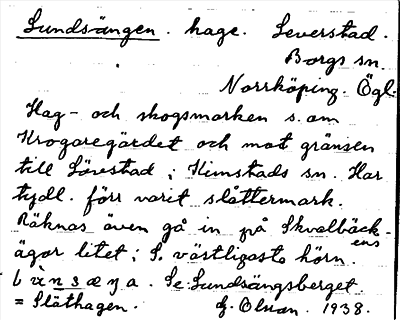 Sundsängen. hage. Leverstad.
Borgs sn.
Norrköping. Ögl.
Hag- och skogsmarken s. om
Krogaregärdet och mot gränsen
till Lövestad i Kimstads sn. Har
tydl. förr varit slåttermark.
Räknas även gå in på Skvalbäck-
ens
ägor litet i S. västligaste hörn.
Se: Sundsängsberget
= Slåthagen. G. Olson. 1938.